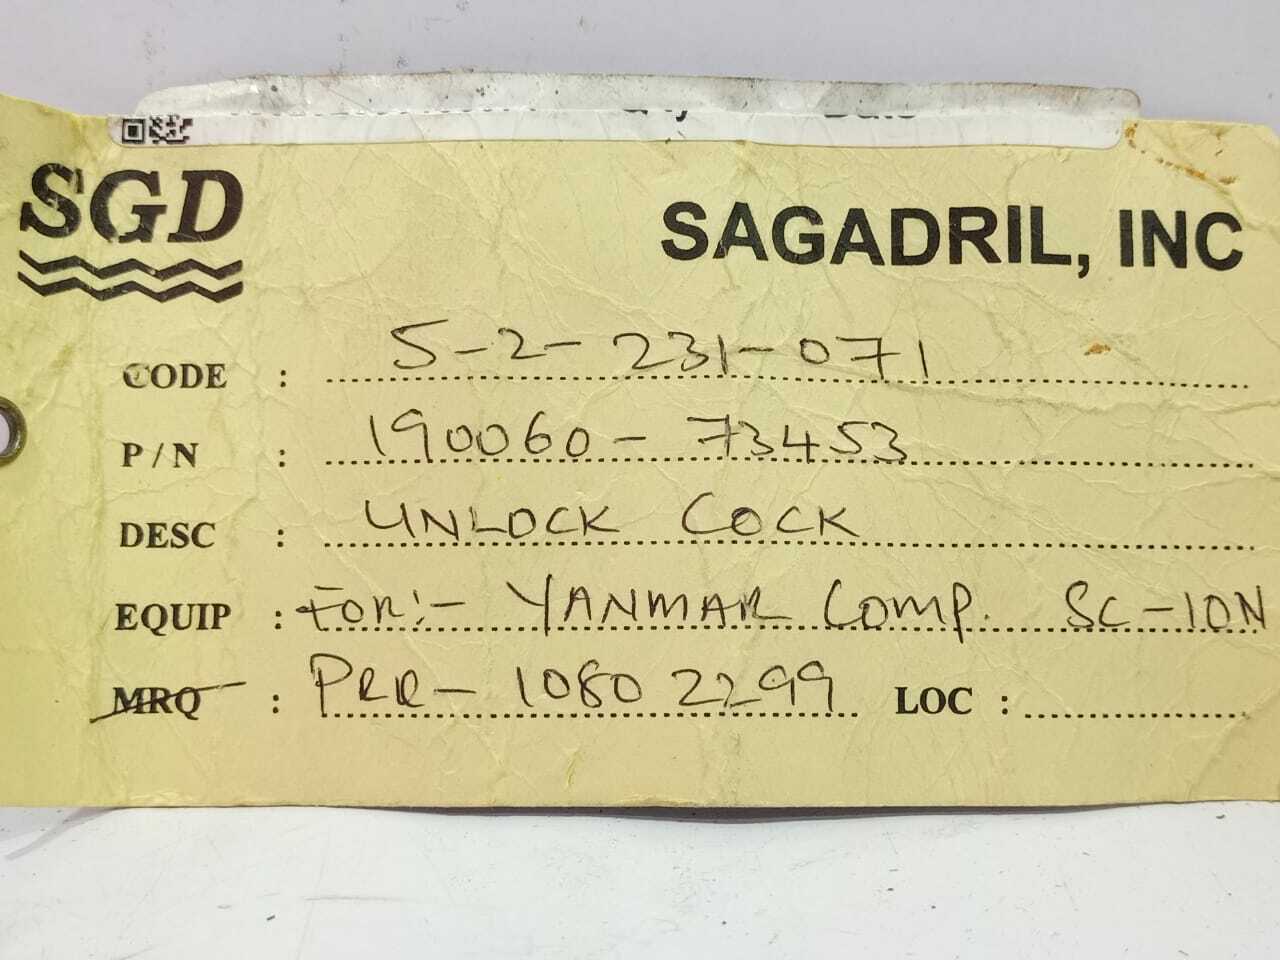 SGD
SAGADRIL, INC
CODE : S-2-231-071
P/N : 190060-73453
DESC : UNLOCK COCK
EQUIP : FOR:- YANMAR COMP. SC-10N
MRQ : PRR-10802299 LOC :